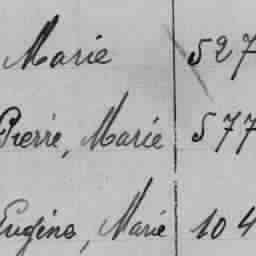 Marie 527
Pierre, Marie 577
Eugène, Marie 104